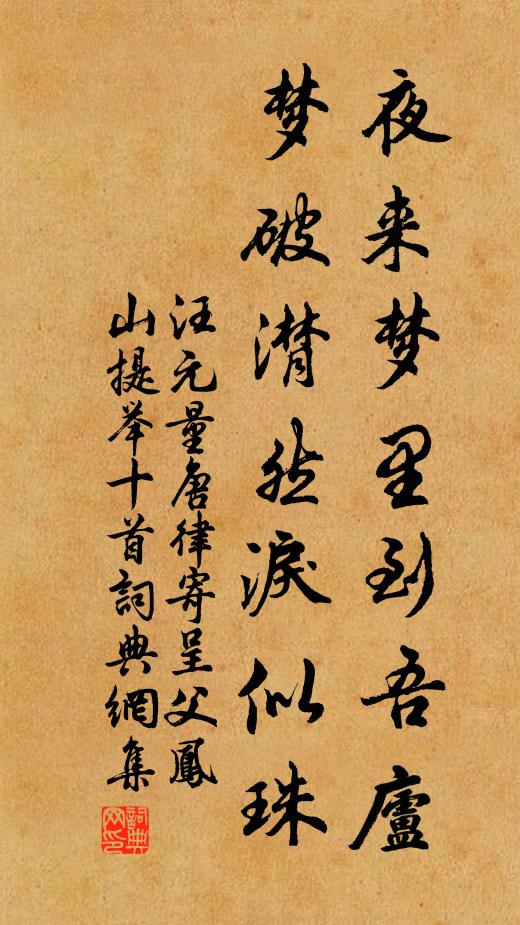 夜来梦里到吾廬
梦破潸然淚似珠
汪元量唐律寄呈父鳳
山提举十首詞典網集
詞典網印